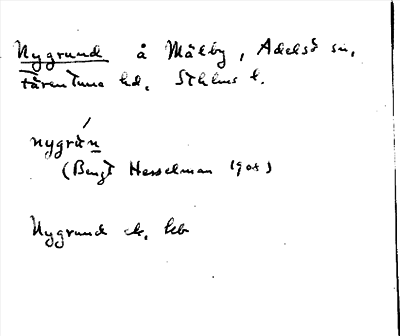 Nygrund å Mälby, Adelsö sn,
Färentuna hd, Sthlms l.
nygrún
(Bengt Hesselman 1904)
Nygrund ek. kb